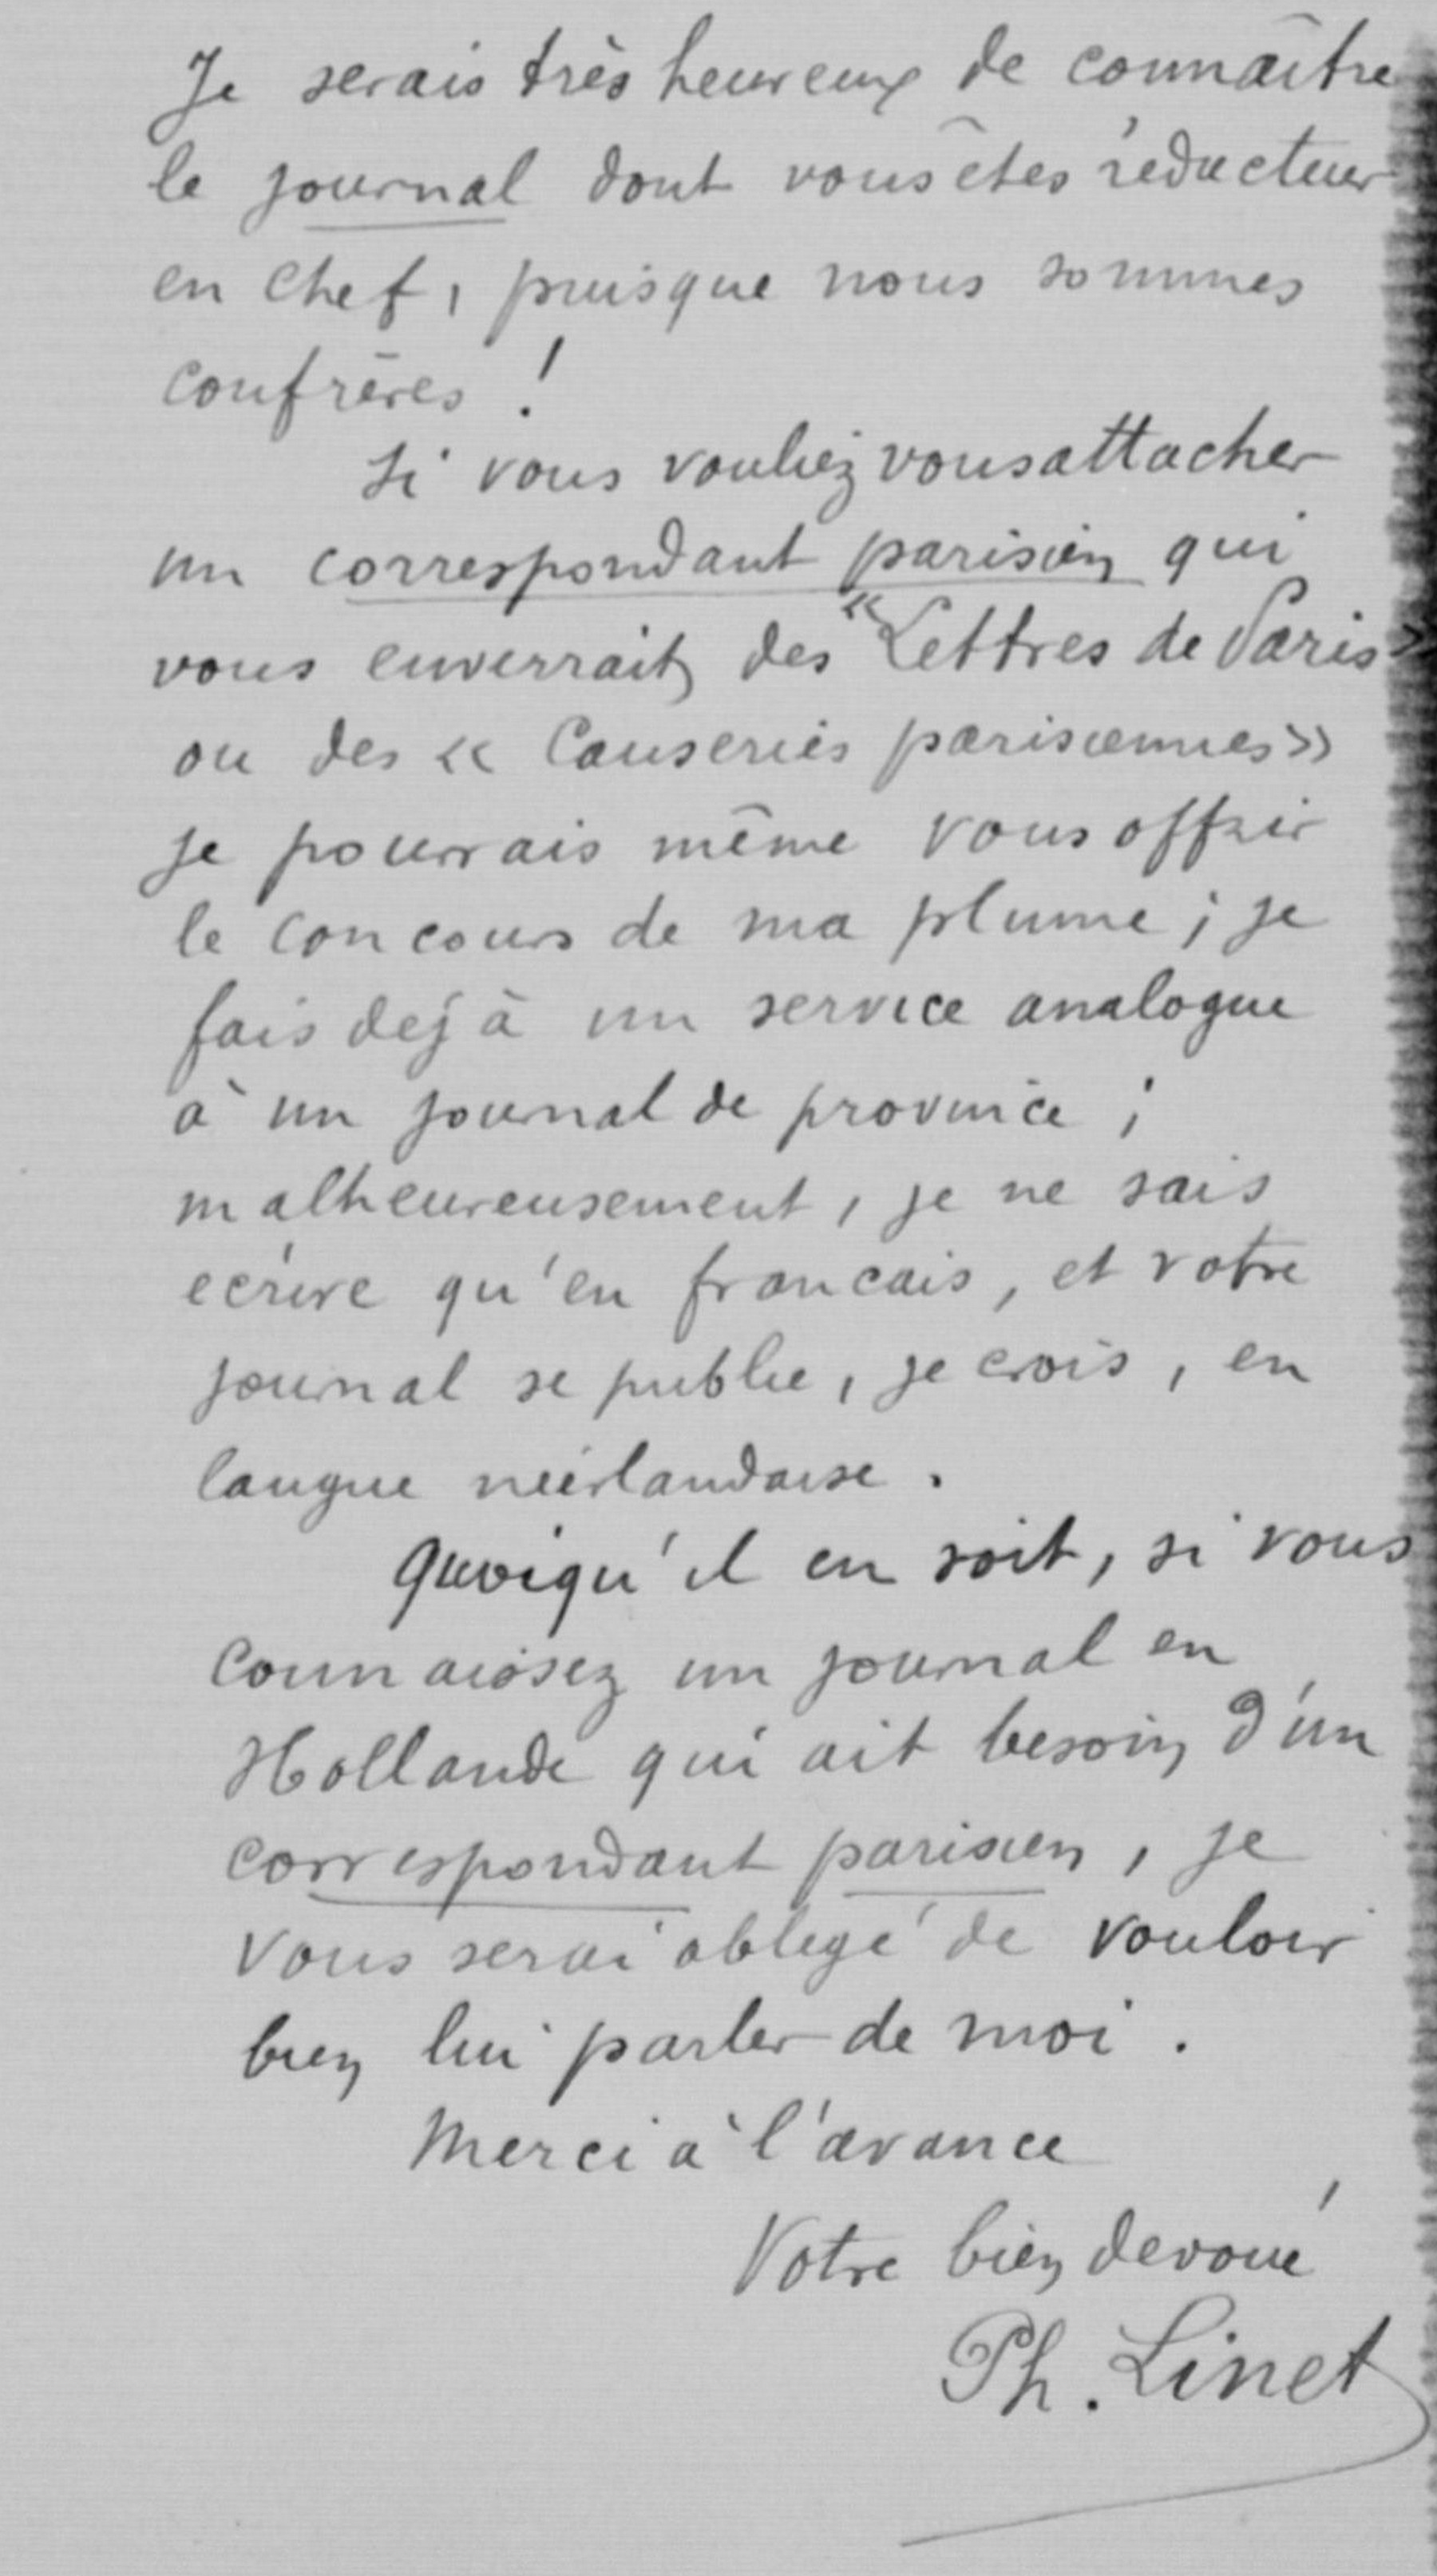 Je serais très heureux de connaître
le journal dont vous êtes rédacteur
en chef, puisque nous sommes
confrères !
Si vous vouliez vous attacher
un correspondant parisien qui
vous enverrait des « Lettres de Paris »
ou des « Causeries parisiennes »
je pourrais même vous offrir
le concours de ma plume ; je
fais dejà un service analogue
à un journal de province ;
malheureusement, je ne sais
écrire qu'en francais, et votre
journal se publie, je crois, en
langue néerlandaise.
Quoiqu'il en soit, si vous
connaissez un journal en
Hollande qui ait besoin d'un
correspondant parisien, je
vous serai obligé de vouloir
bien lui parler de moi.
Merci à l'avance
Votre bien devoué
Ph. Linet